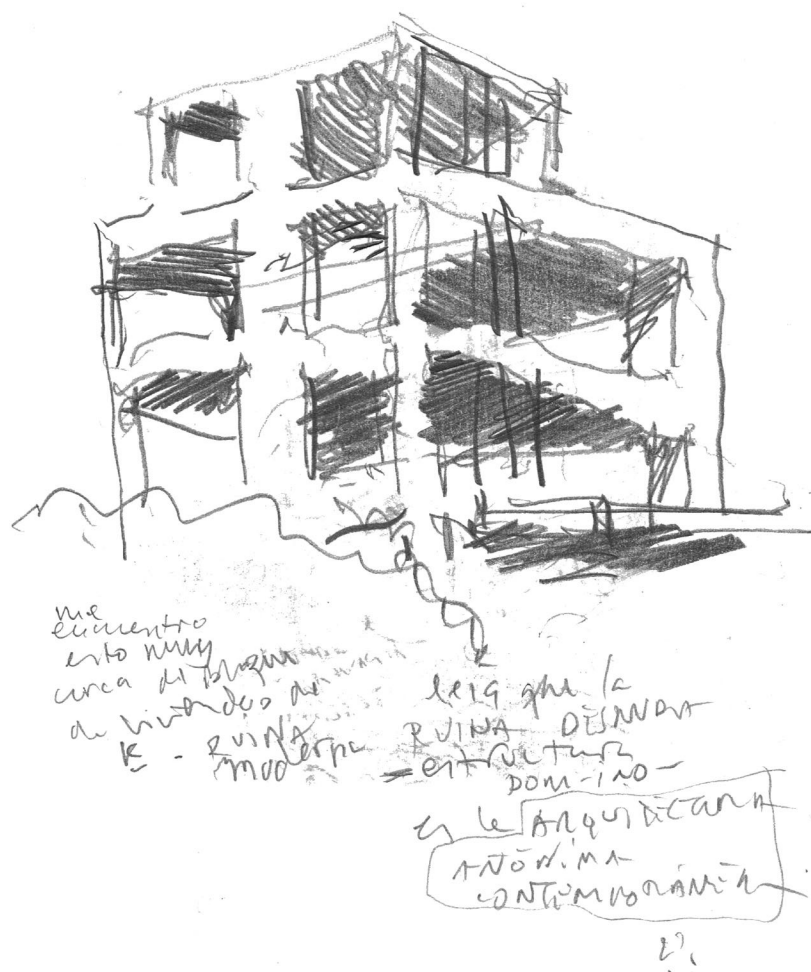 me
encuentro
esto muy
cerca del bloque
de viviendas de
K - RUINA
moderna
será que la
RUINA DESNUDA
= estructura
DOM-INO -
es la ARQUITECTURA
ANÓNIMA
CONTEMPORÁNEA
¿?